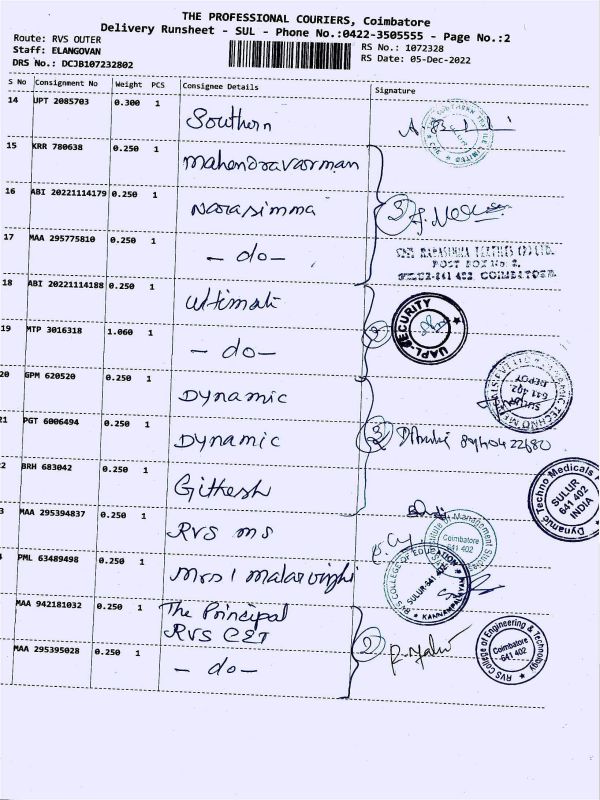 THE PROFESSIONAL COURIERS, Coimbatore
Delivery Runsheet - SUL - Phone No.:0422-3505555 - Page No.:2
Route: RVS OUTER
RS No.: 1072328
Staff: ELANGOVAN
RS Date: 05-Dec-2022
DRS No.: DCJB107232802
S No Consignment No Weight PCS Consignee Details Signature
14 UPT 2085703 0.300 1 Southern
15 KRR 780638 0.250 1 Mahendravarman
16 ABI 20221114179 0.250 1 Narasimma
17 MAA 295775810 0.250 1 - do -
POST BOX No. 2,
18 ABI 20221114188 0.250 1 Ultimate
UAPL-SECURITY
19 MTP 3016318 1.060 1 - do -
20 GPM 620520 0.250 1 Dynamic
SULUR
641 402
DEPOT
21 PGT 6006494 0.250 1 Dynamic
2 BRH 683042 0.250 1 Githesh
Dynamic Techno Medicals
SULUR
641 402
INDIA
3 MAA 295394837 0.250 1 RVS MS
Institute of Management Studies
Coimbatore
641 402
PML 63489498 0.250 1 Mrs
RVS COLLEGE OF EDUCATION
SULUR-641 402
MAA 942181032 0.250 1 The Principal
RVS CET
RVS College of Engineering & Technology
Coimbatore
641 402
MAA 295395028 0.250 1 - do -